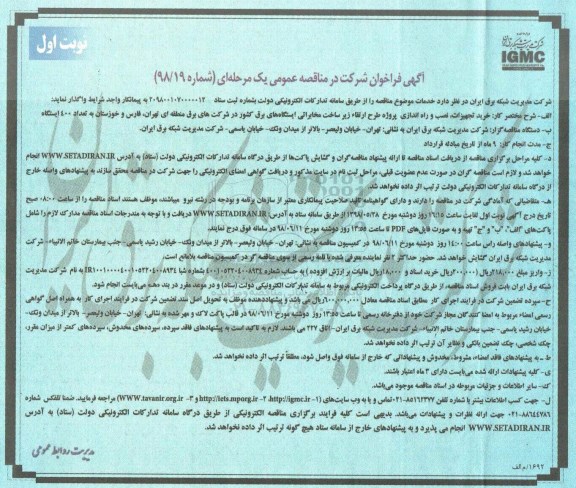 نوبت اول
شرکت مدیریت شبکه برق ایران
IGMC
آگهی فراخوان شرکت در مناقصه عمومی یک مرحله‌ای (شماره ۹۸/۱۹)
شرکت مدیریت شبکه برق ایران در نظر دارد خدمات موضوع مناقصه را از طریق سامانه تدارکات الکترونیکی دولت بشماره ثبت ستاد ۲۰۹۸۰۰۱۰۷۰۰۰۰۰۱۲ به پیمانکار واجد شرایط واگذار نماید:
الف- شرح مختصر کار: خرید تجهیزات، نصب و راه اندازی پروژه طرح ارتقاء زیر ساخت مخابراتی ایستگاه‌های برق کشور در شرکت های برق منطقه ای تهران، فارس و خوزستان به تعداد ۴۰۰ ایستگاه
ب- دستگاه مناقصه‌گزار: شرکت مدیریت شبکه برق ایران به نشانی: تهران- خیابان ولیعصر- بالاتر از میدان ونک- خیابان یاسمی- شرکت مدیریت شبکه برق ایران.
ج- مدت انجام کار: ۹ ماه از تاریخ مبادله قرارداد
د- کلیه مراحل برگزاری مناقصه از دریافت اسناد مناقصه تا ارائه پیشنهاد مناقصه‌گران و گشایش پاکت‌ها از طریق درگاه سامانه تدارکات الکترونیکی دولت (ستاد) به آدرس WWW.SETADIRAN.IR انجام
خواهد شد و لازم است مناقصه گران در صورت عدم عضویت قبلی، مراحل ثبت نام در سایت مذکور و دریافت گواهی امضای الکترونیکی را جهت شرکت در مناقصه محقق سازند. به پیشنهادهای واصله خارج
از درگاه سامانه تدارکات الکترونیکی دولت ترتیب اثر داده نخواهد شد.
هـ- متقاضیانی که آمادگی شرکت در مناقصه را دارند و دارای گواهینامه تائید صلاحیت پیمانکاری معتبر از سازمان برنامه و بودجه در رشته نیرو میباشند، موظف هستند اسناد مناقصه را از ساعت ۰۸:۰۰ صبح
تاریخ درج آگهی نوبت اول لغایت ساعت ۱۶:۱۵ روز دوشنبه مورخ ۱۳۹۸/۰۵/۲۸ از طریق سامانه ستاد به آدرس: WWW.SETADIRAN.IR دریافت و با توجه به مندرجات اسناد مناقصه مدارک لازم را شامل
پاکت‌های "الف"، "ب" و "ج" تهیه و به صورت فایل‌های PDF تا ساعت ۱۳:۵۵ روز دوشنبه مورخ ۹۸/۰۶/۱۱ در سامانه فوق درج نمایند.
و- پیشنهادهای واصله راس ساعت ۱۴:۰۰ روز دوشنبه مورخ ۹۸/۰۶/۱۱ در کمیسیون مناقصه به نشانی: تهران- خیابان ولیعصر- بالاتر از میدان ونک- خیابان رشید یاسمی- جنب بیمارستان خاتم الانبیاء- شرکت
مدیریت شبکه برق ایران گشایش خواهد شد. حضور حداکثر ۲ نفر نماینده معرفی شده با نامه رسمی از سوی مناقصه‌گر در کمیسیون مناقصه بلامانع است.
ز- واریز مبلغ ۲۱۸,۰۰۰ ریال (۲۰۰,۰۰۰ ریال خرید اسناد و ۱۸,۰۰۰ ریال مالیات بر ارزش افزوده) به حساب شماره ۴۰۰۱۰۵۲۲۰۴۰۰۸۹۳۴ شماره شبا IR۱۰۰۱۰۰۰۰۴۰۰۱۰۵۲۲۰۴۰۰۸۹۳۴ به نام شرکت مدیریت
شبکه برق ایران بابت فروش اسناد مناقصه، از طریق درگاه پرداخت الکترونیکی مربوط به سامانه تدارکات الکترونیکی دولت (ستاد) و در موعد مقرر در بند «هـ» می‌بایست انجام شود.
ح- سپرده تضمین شرکت در فرایند اجرای کار مطابق اسناد مناقصه معادل ۶,۰۰۰,۰۰۰,۰۰۰ ریال می باشد و پیشنهاددهنده موظف به تحویل اصل سند تضمین شرکت در فرایند اجرای کار به همراه اصل گواهی
رسمی امضاء مربوط به امضا کنندگان مجاز شرکت خود از دفترخانه رسمی تا ساعت ۱۳:۵۵ روز دوشنبه مورخ ۹۸/۰۶/۱۱ در قالب پاکت لاک و مهر شده به نشانی: تهران- خیابان ولیعصر- بالاتر از میدان ونک-
خیابان رشید یاسمی- جنب بیمارستان خاتم الانبیاء- شرکت مدیریت شبکه برق ایران- اتاق ۲۲۷ می باشند. لازم به تاکید است به پیشنهادهای فاقد سپرده، سپرده‌های مخدوش، سپرده‌های کمتر از میزان مقرر،
چک شخصی، چک تضمین بانکی و نظایر آن ترتیب اثر داده نخواهد شد.
ط- به پیشنهادهای فاقد امضاء، مشروط، مخدوش و پیشنهاداتی که خارج از سامانه فوق واصل شود، مطلقاً ترتیب اثر داده نخواهد شد.
ی- کلیه پیشنهادات ارائه شده می‌بایست دارای ۳ ماه اعتبار باشند.
ک- سایر اطلاعات و جزئیات مربوطه در اسناد مناقصه موجود می‌باشد.
ل- جهت کسب اطلاعات بیشتر با شماره تلفن ۸۵۱۶۲۳۷۷-۰۲۱ تماس و یا به وب سایت‌های (۱- http://igmc.ir، ۲- http://iets.mporg.ir و ۳- WWW.tavanir.org.ir) مراجعه فرمایید. ضمنا تلفکس شماره
۸۸۶۴۴۷۸۶-۰۲۱ جهت ارائه نظرات و پیشنهادات می‌باشد. بدیهی است کلیه فرایند برگزاری مناقصه الکترونیکی از طریق درگاه سامانه تدارکات الکترونیکی دولت (ستاد) به آدرس
WWW.SETADIRAN.IR انجام می پذیرد و به پیشنهادهای خارج از سامانه ستاد هیچ گونه ترتیب اثر داده نخواهد شد.
مدیریت روابط عمومی
۱۶۹۲/م الف